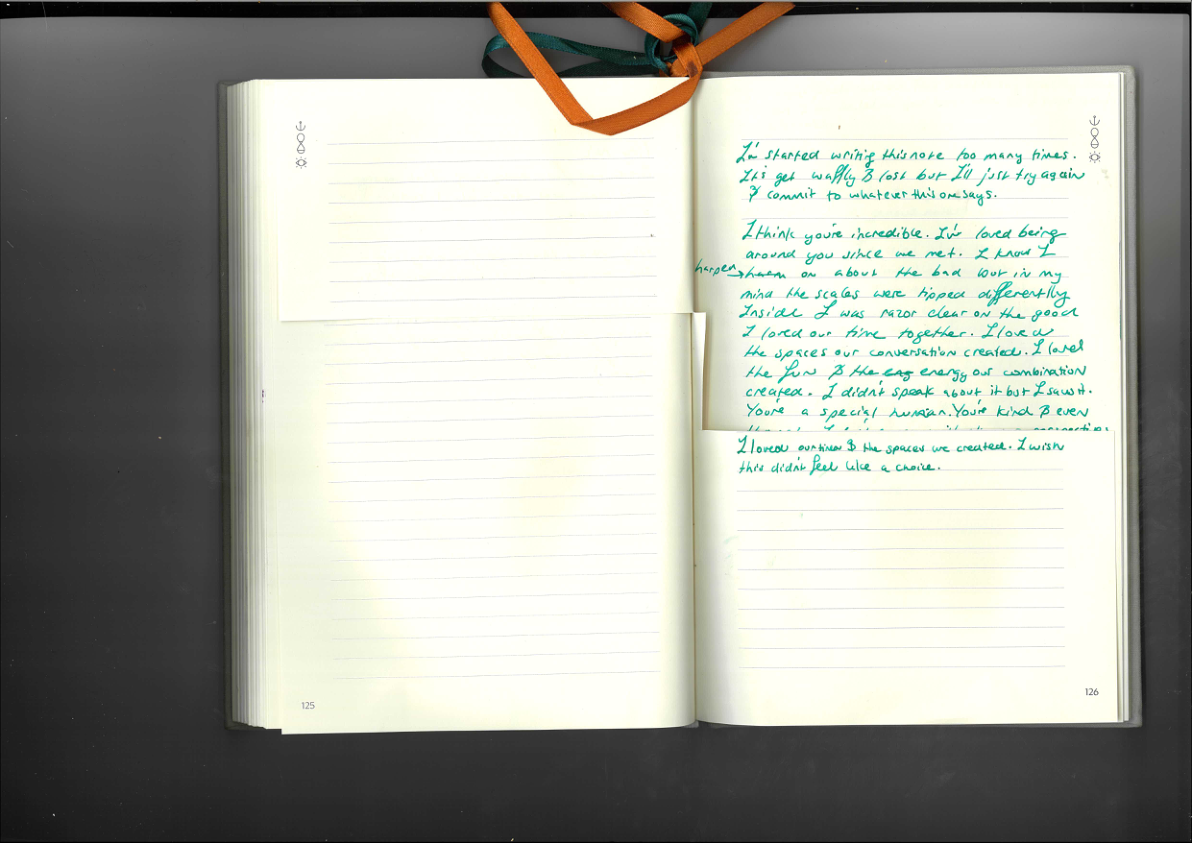 I've started writing this note too many times.
It's get waffly & lost but I'll just try again
& commit to whatever this one says.
I think you're incredible. I've loved being
around you since we met. I know I
harpen
on about the bad but in my
mind the scales were tipped differently
Inside I was razor clear on the good
I loved our time together. I loved
the spaces our conversation created. I loved
the fun & the eng energy our combination
created. I didn't speak about it but I saw it.
You're a special human. You're kind & even
I loved our time & the spaces we created. I wish
this didn't feel like a choice.
125
126